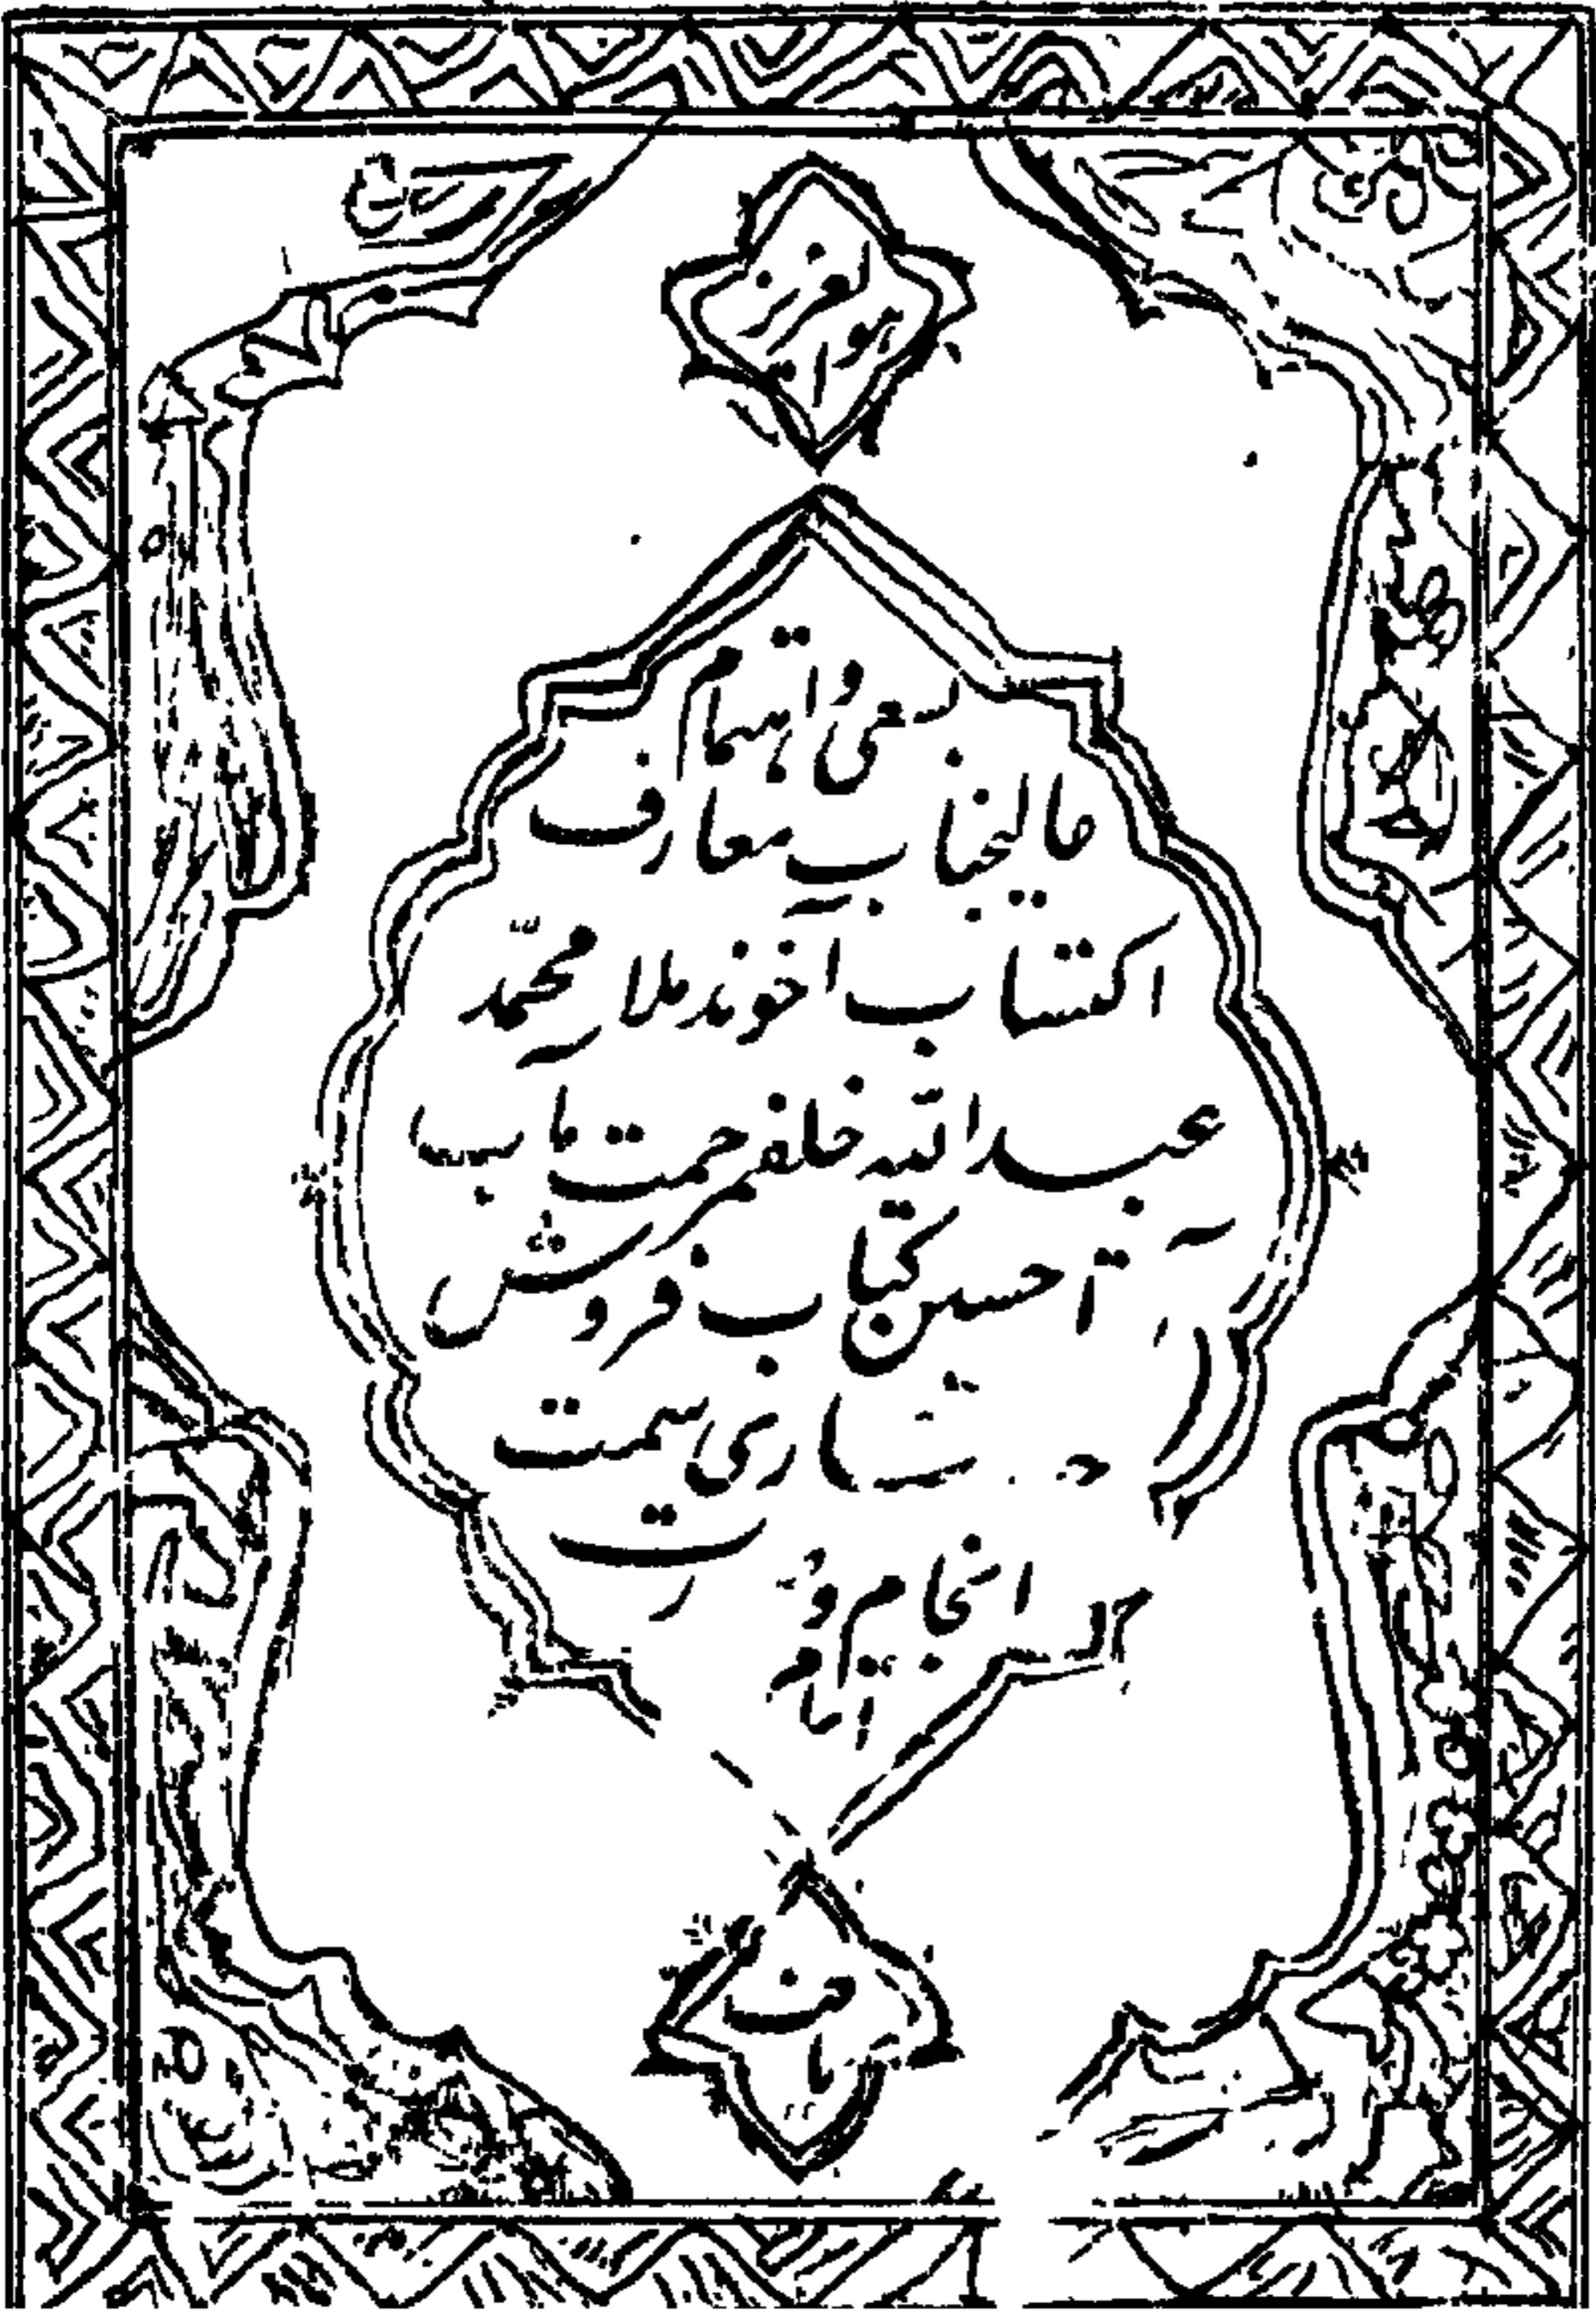 هو العزیز
بسعی و اهتمام
عالیجناب معارف
اکتساب آخوند ملا محمد
عبدالله خلف مرحمت مآب
آ حسین کتاب فروش
ساری سمت
انجام و
اتمام